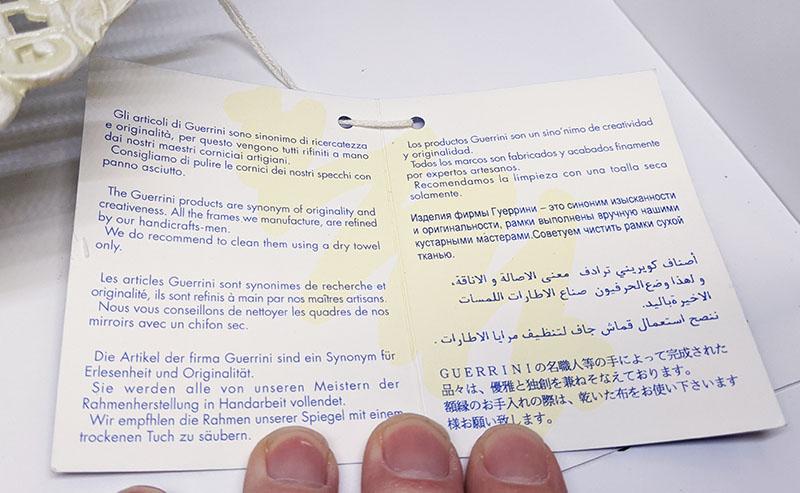 Gli articoli di Guerrini sono sinonimo di ricercatezza
e originalità, per questo vengono tutti rifiniti a mano
dai nostri maestri corniciai artigiani.
Consigliamo di pulire le cornici dei nostri specchi con
panno asciutto.
The Guerrini products are synonym of originality and
creativeness. All the frames we manufacture, are refined
by our handicrafts-men.
We do recommend to clean them using a dry towel
only.
Les articles Guerrini sont synonimes de recherche et
originalité, ils sont refinis à main par nos maîtres artisans.
Nous vous conseillons de nettoyer les quadres de nos
mirroirs avec un chifon sec.
Die Artikel der firma Guerrini sind ein Synonym für
Erlesenheit und Originalität.
Sie werden alle von unseren Meistern der
Rahmenherstellung in Handarbeit vollendet.
Wir empfhlen die Rahmen unserer Spiegel mit einem
trockenen Tuch zu säubern.
Los productos Guerrini son un sino'nimo de creatividad
y originalidad.
Todos los marcos son fabricados y acabados finamente
por expertos artesanos.
Recomendamos la limpieza con una toalla seca
solamente.
Изделия фирмы Гуеррини – это синоним изысканности
и оригинальности, рамки выполнены вручную нашими
кустарными мастерами.Советуем чистить рамки сухой
тканью.
أصناف كويريني ترادف معنى الاصالة و الاناقة،
و لهذا وضع الحرفيون صناع الاطارات اللمسات
الاخيرة باليد.
ننصح استعمال قماش جاف لتنظيف مرايا الاطارات.
GUERRINIの名職人等の手によって完成された
品々は、優雅と独創を兼ねそなえております。
額縁のお手入れの際は、乾いた布をお使い下さいます
様お願い致します。